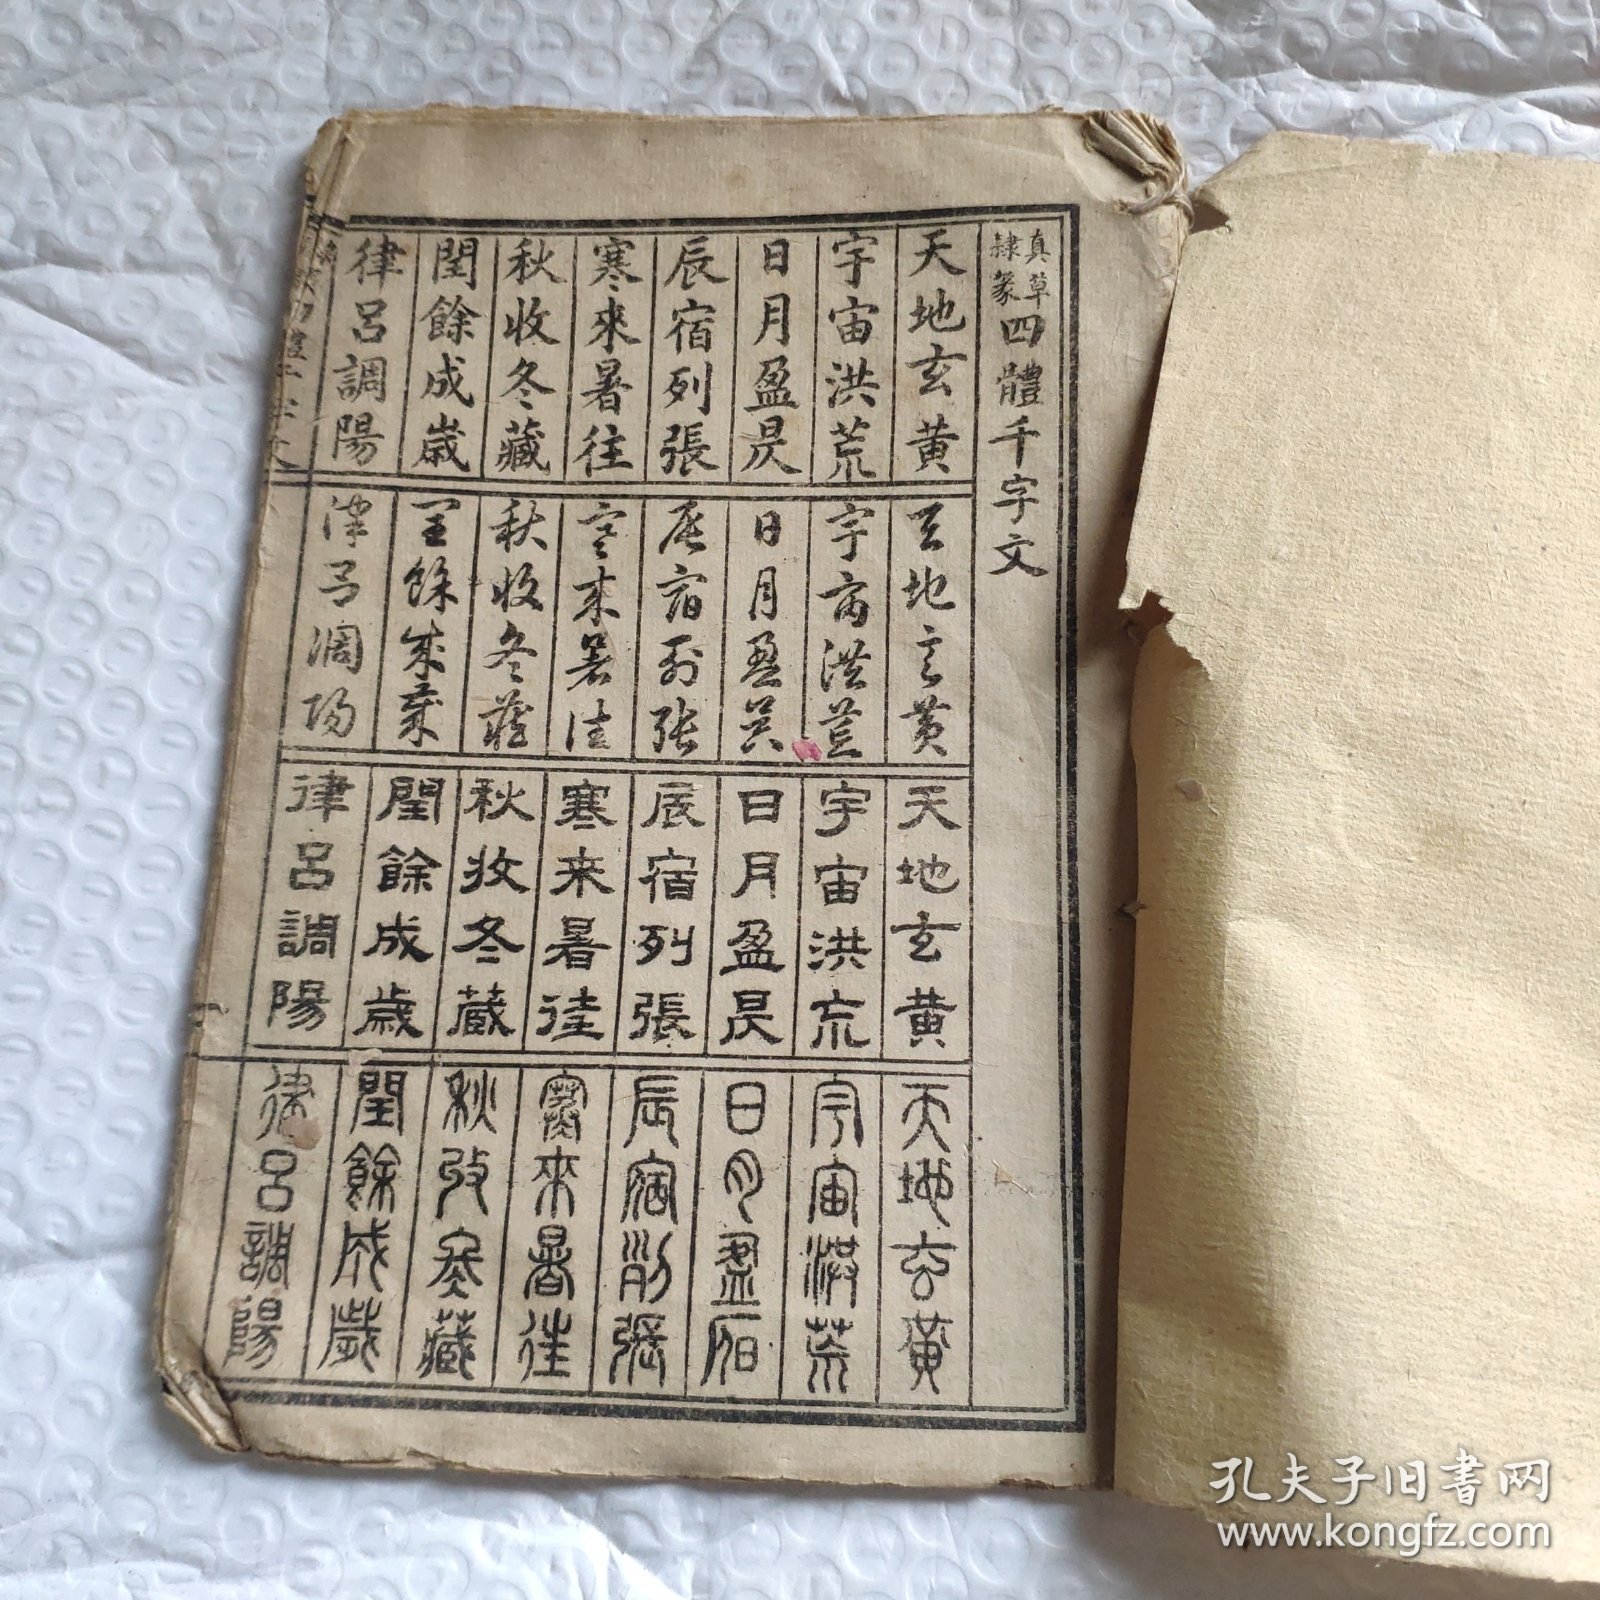 真草隸篆四體千字文
天地玄黃
宇宙洪荒
日月盈昃
辰宿列張
寒來暑往
秋收冬藏
閏餘成歲
律呂調陽
天地玄黃
宇宙洪荒
日月盈昃
辰宿列張
寒來暑往
秋收冬藏
閏餘成歲
律呂調陽
天地玄黃
宇宙洪荒
日月盈昃
辰宿列張
寒来暑往
秋收冬藏
閏餘成歲
律呂調陽
天地玄黃
宇宙洪荒
日月盈昃
辰宿列張
寒來暑往
秋收冬藏
閏餘成歲
律呂調陽
孔夫子旧书网
www.kongfz.com